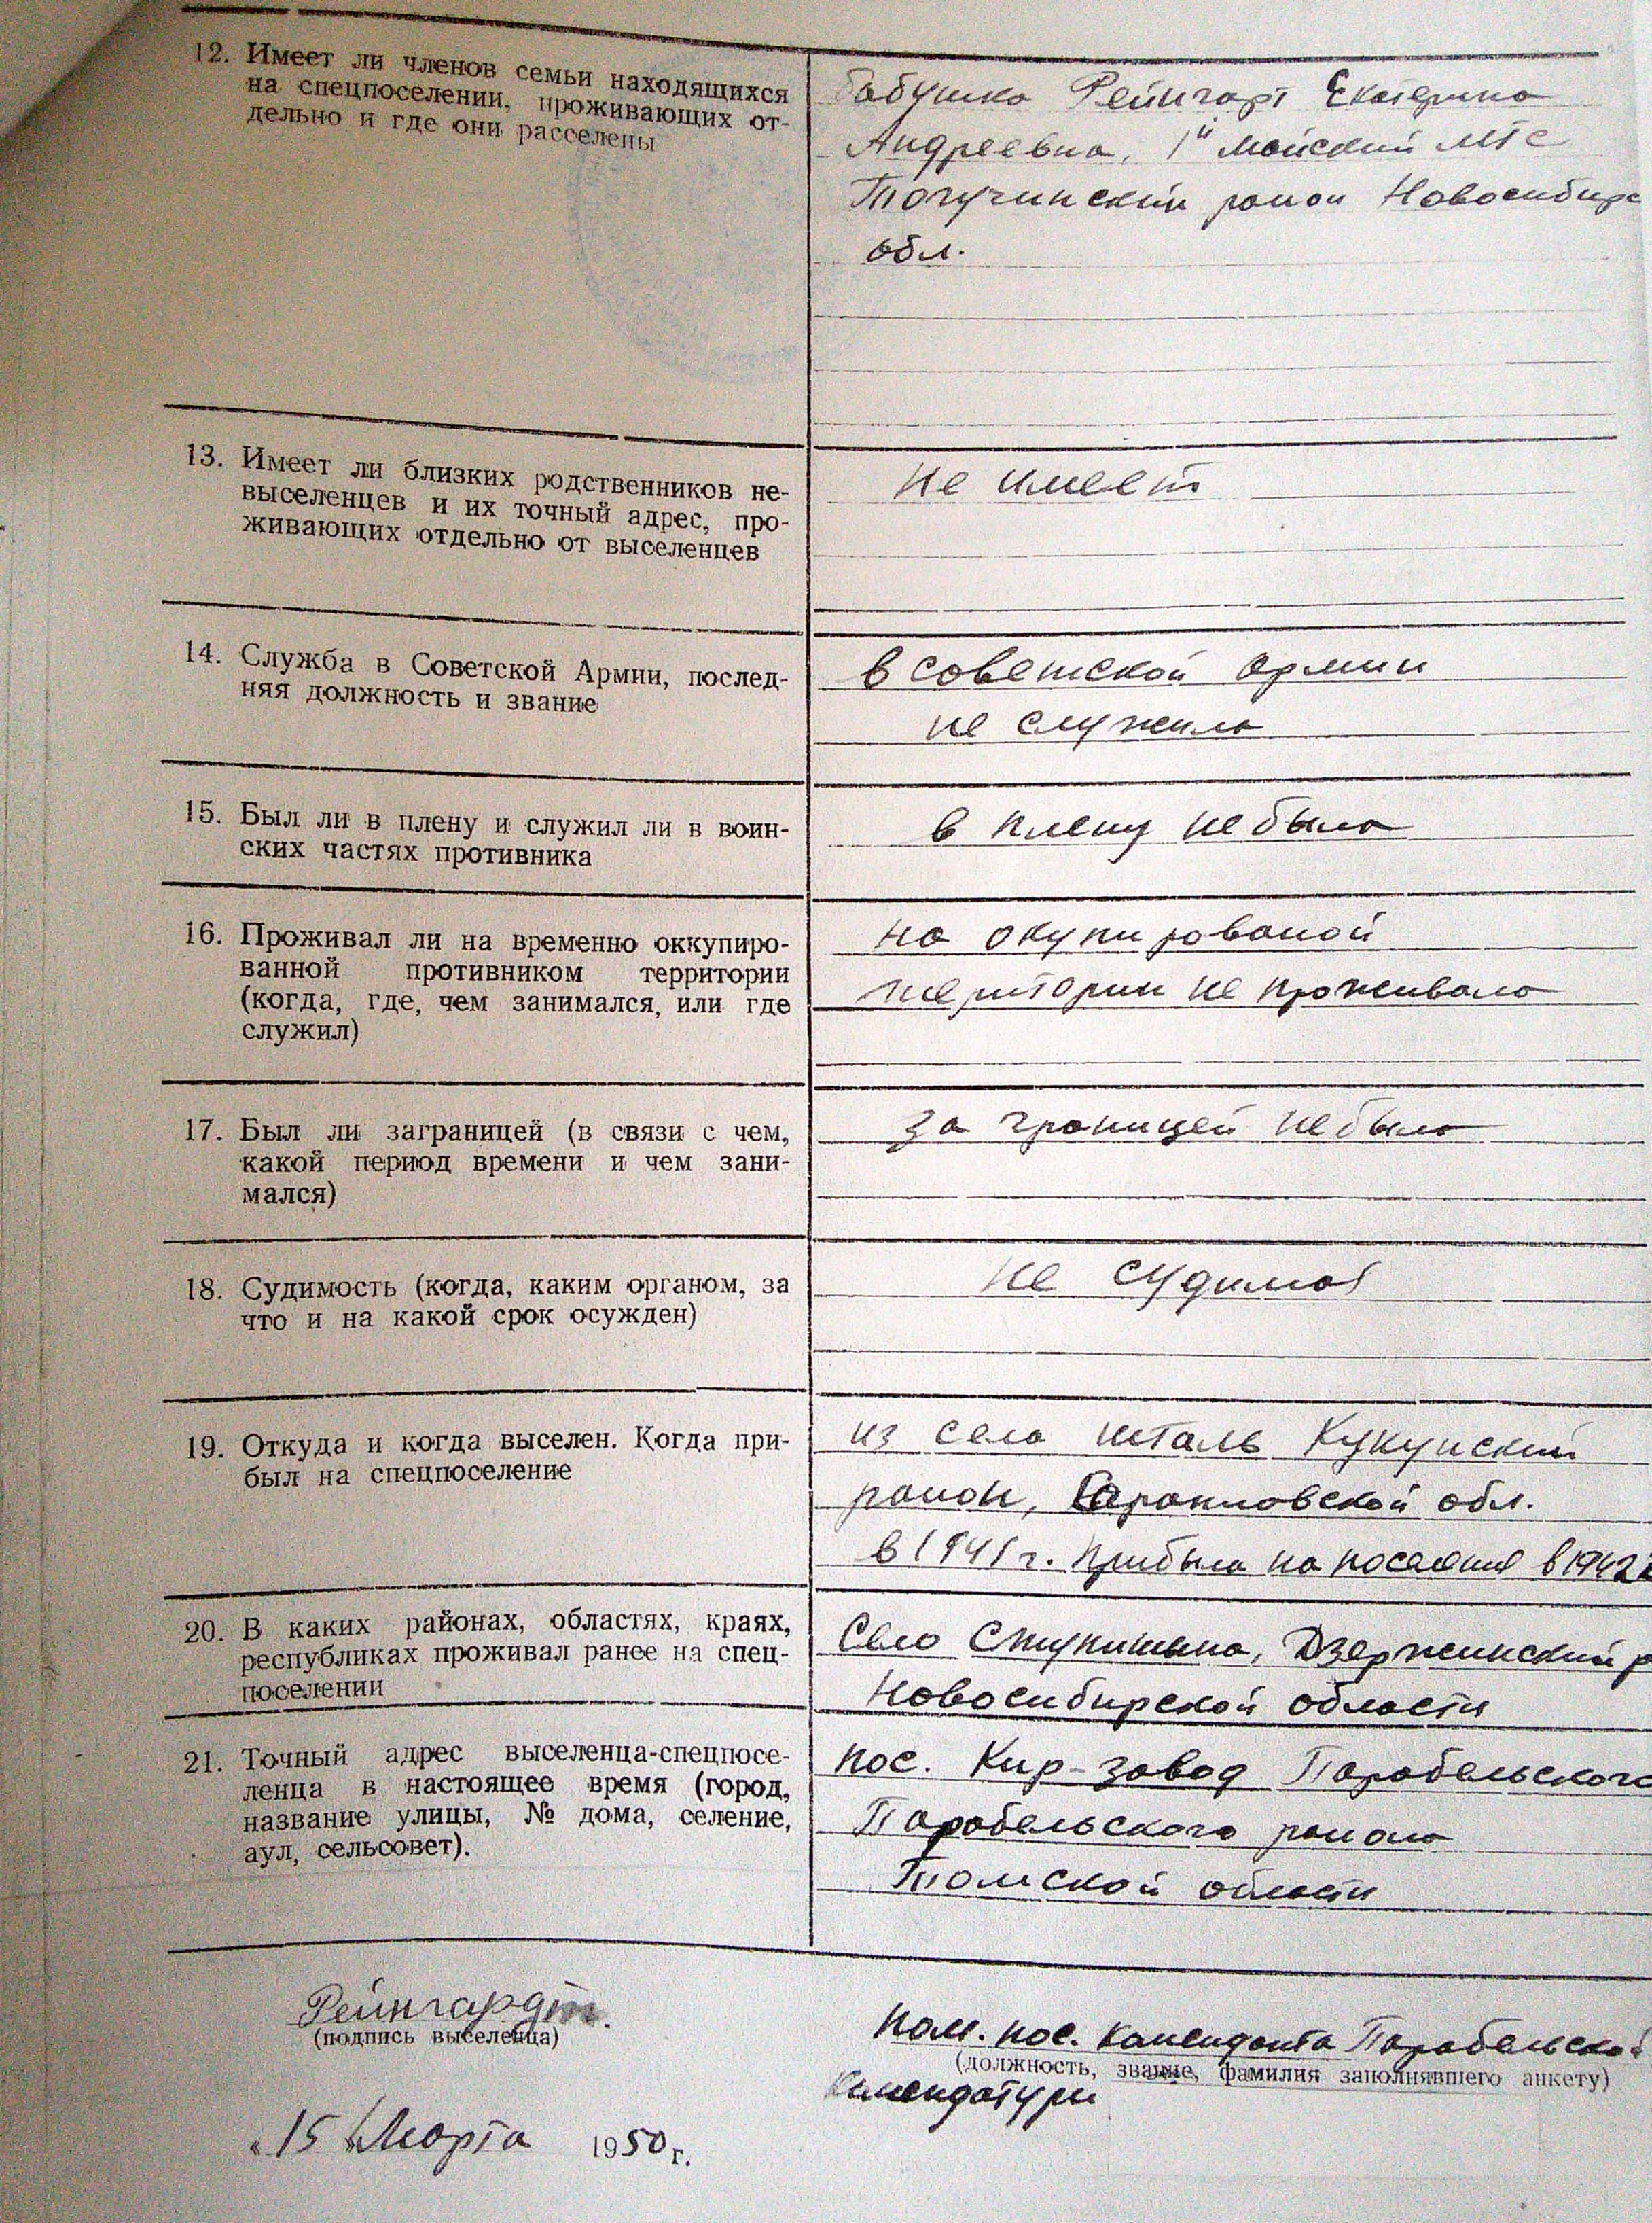 12. Имеет ли членов семьи находящихся
на спецпоселении, проживающих от-
дельно и где они расселены
бабушка Рейнгарт Екатерина
Андреевна, 1й Майский МТС
Тогучинский район Новосибирс
обл.
13. Имеет ли близких родственников не-
выселенцев и их точный адрес, про-
живающих отдельно от выселенцев
не имеет
14. Служба в Советской Армии, послед-
няя должность и звание
в советской армии
не служила
15. Был ли в плену и служил ли в воин-
ских частях противника
в плену не была
16. Проживал ли на временно оккупиро-
ванной противником территории
(когда, где, чем занимался, или где
служил)
на окупированой
територии не проживала
17. Был ли заграницей (в связи с чем,
какой период времени и чем зани-
мался)
за границей не была
18. Судимость (когда, каким органом, за
что и на какой срок осужден)
не судимая
19. Откуда и когда выселен. Когда при-
был на спецпоселение
из села шталь Кукуский
район, Саратовской обл.
в 1941 г. прибыла на поселения в 1942
20. В каких районах, областях, краях,
республиках проживал ранее на спец-
поселении
Село Ступишена, Дзержинский р
Новосибирской области
21. Точный адрес выселенца-спецпосе-
ленца в настоящее время (город,
название улицы, № дома, селение,
аул, сельсовет).
пос. Кир-завод Парабельского
Парабельского района
Томской области
Рейнгардт.
(подпись выселенца)
пом. пос. камендонта Парабельской
(должность, звание, фамилия заполнявшего анкету)
камендатуры
„15 Марта 1950 г.